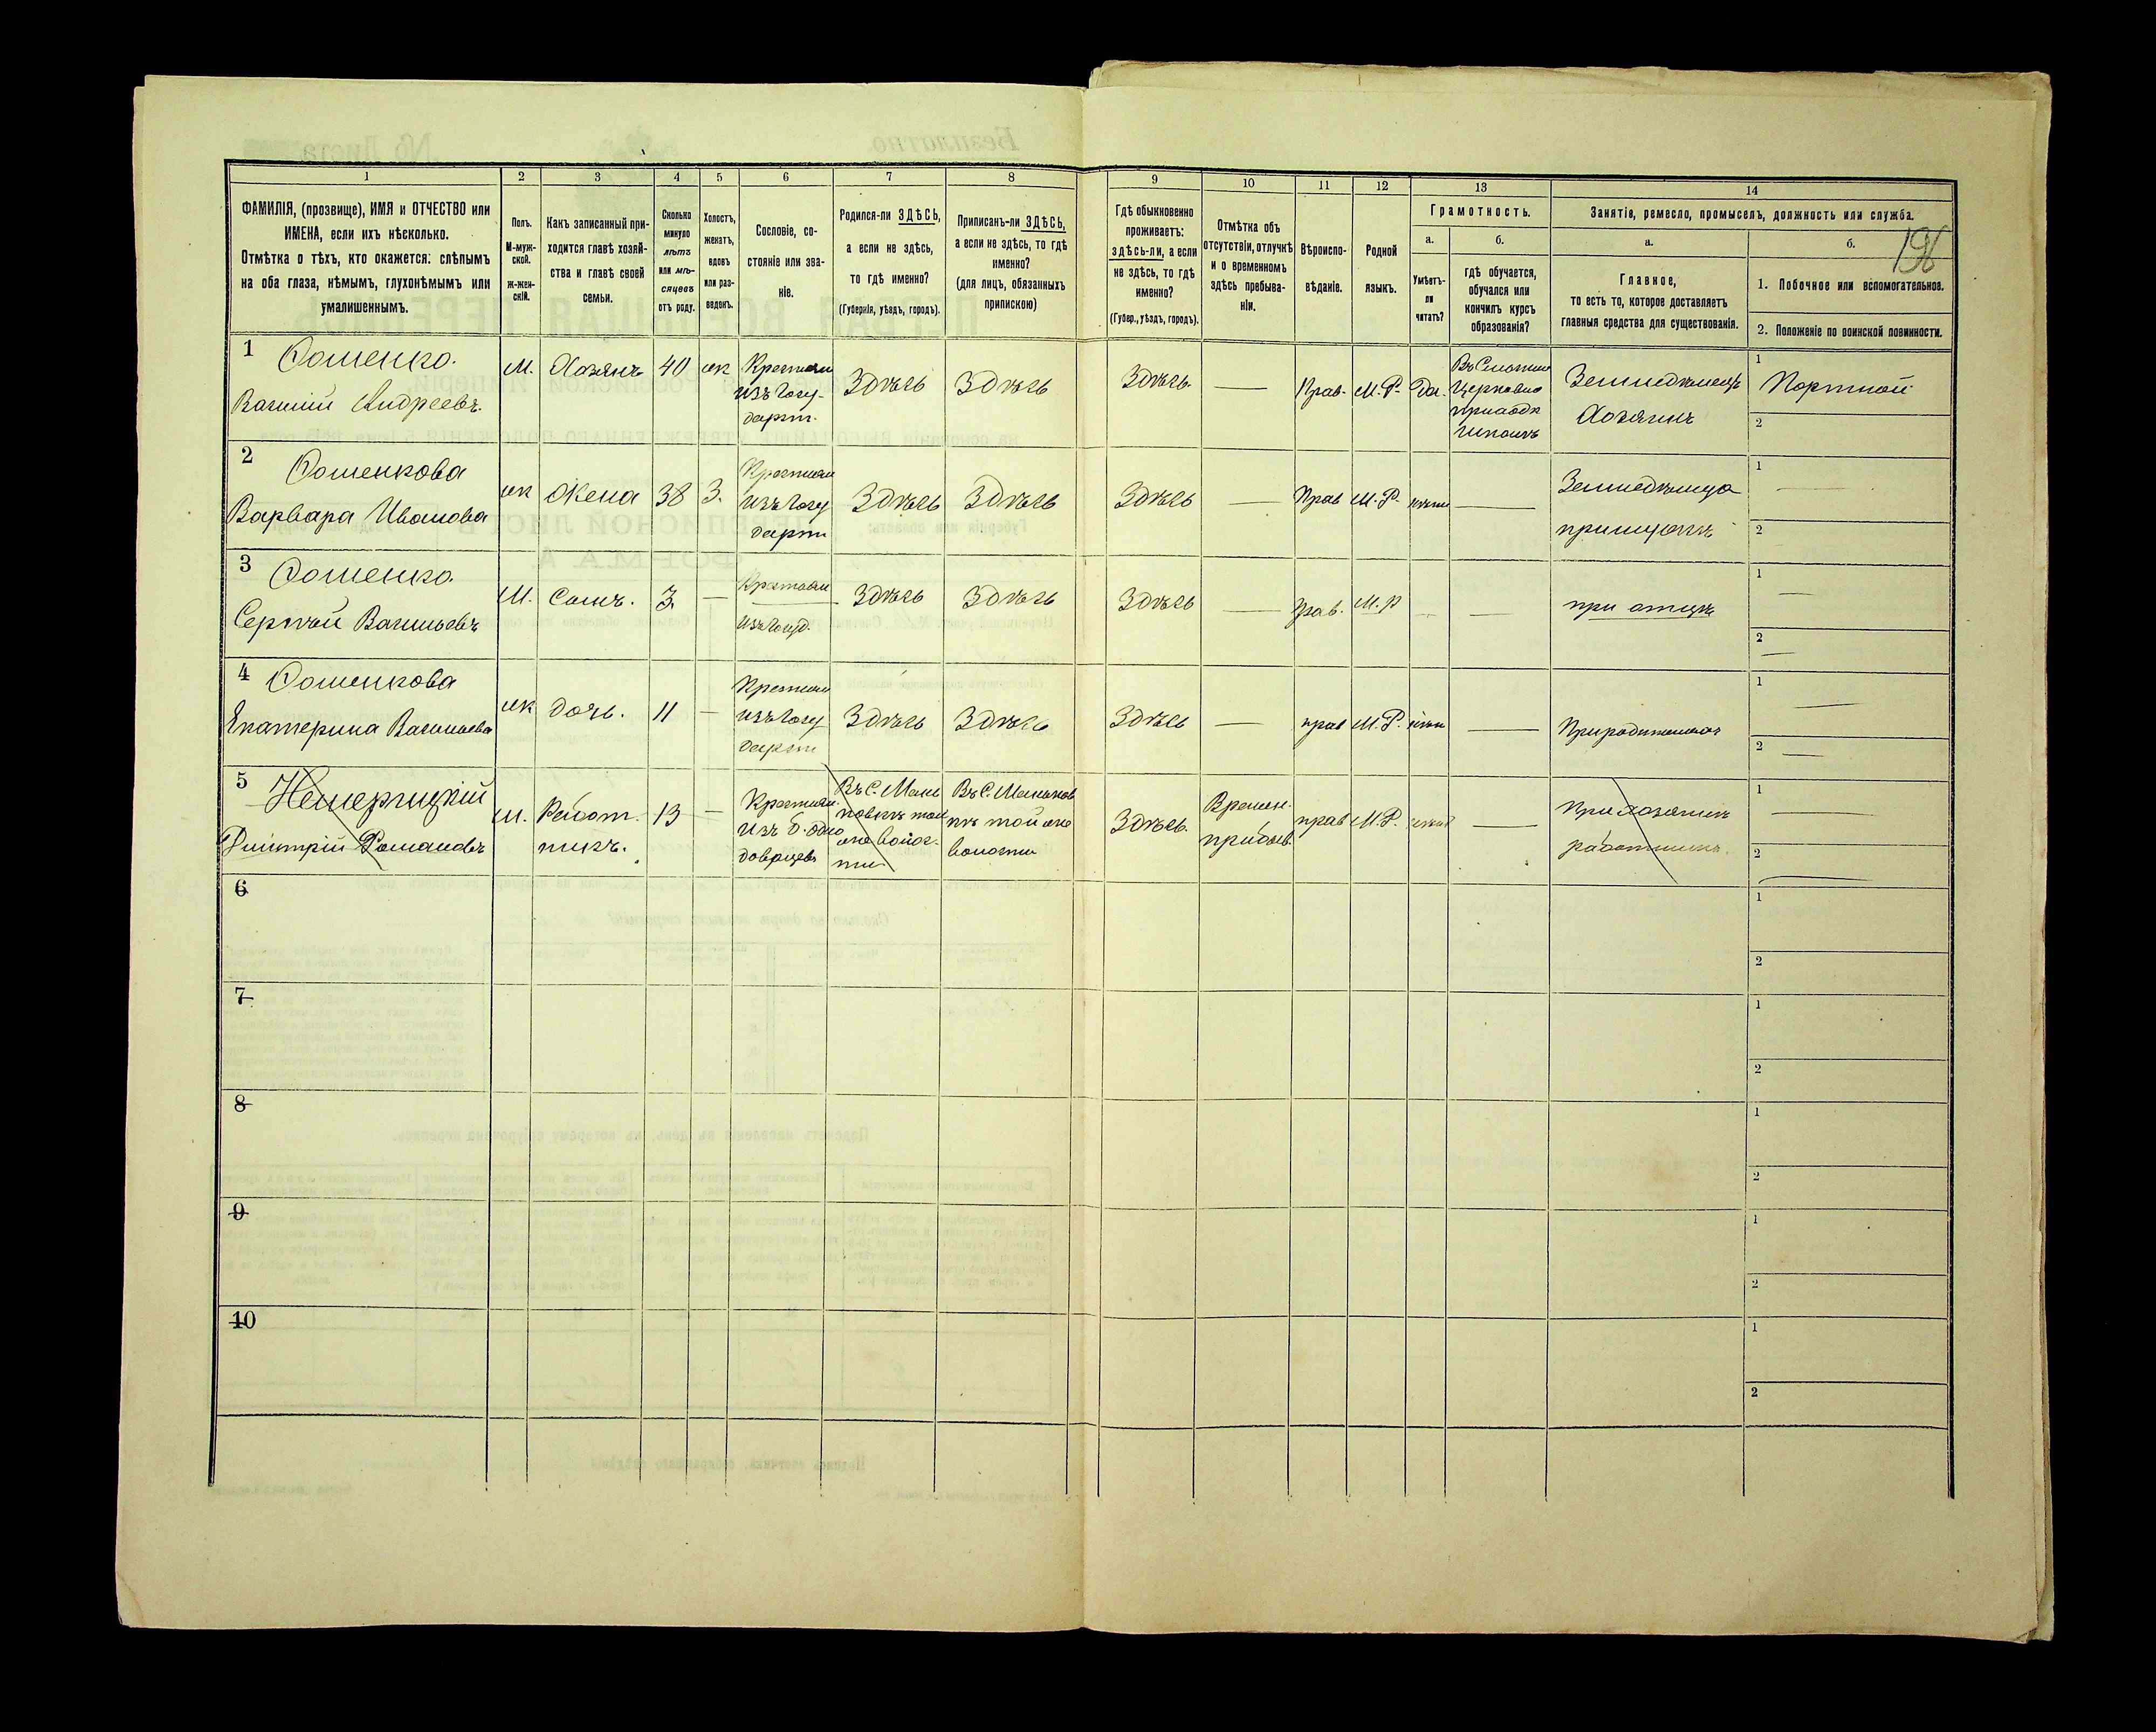 1 2 3 4 5 6 7 8 9 10 11 12 13 14
ФАМИЛІЯ, (прозвище), ИМЯ и ОТЧЕСТВО или
ИМЕНА, если ихъ нѣсколько.
Отмѣтка о тѣхъ, кто окажется: слѣпымъ
на оба глаза, нѣмымъ, глухонѣмымъ или
умалишеннымъ.
Полъ.
М-муж-
ской.
Ж-жен-
скій.
Какъ записанный при-
ходится главѣ хозяй-
ства и главѣ своей
семьи.
Сколько
минуло
лѣтъ
или мѣ-
сяцевъ
отъ роду.
Холостъ,
женатъ,
вдовъ
или раз-
веденъ.
Сословіе, со-
стояніе или зва-
ніе.
Родился-ли ЗДѢСЬ,
а если не здѣсь,
то гдѣ именно?
(Губернія, уѣздъ, городъ).
Приписанъ-ли ЗДѢСЬ,
а если не здѣсь, то гдѣ
именно?
(для лицъ, обязанныхъ
припискою)
Гдѣ обыкновенно
проживаетъ:
здѣсь-ли, а если
не здѣсь, то гдѣ
именно?
(Губер., уѣздъ, городъ).
Отмѣтка объ
отсутствіи, отлучкѣ
и о временномъ
здѣсь пребыва-
ніи.
Вѣроиспо-
вѣданіе.
Родной
языкъ.
Грамотность.
а.
Умѣетъ-
ли
читать?
б.
гдѣ обучается,
обучался или
кончилъ курсъ
образованія?
Занятія, ремесло, промыселъ, должность или служба.
а.
Главное,
то есть то, которое доставляетъ
главныя средства для существованія.
б.
196
1. Побочное или вспомогательное.
2. Положеніе по воинской повинности.
1
Василій Андреевъ.
М.
Хозяинъ
40
жен
Крестьян
изъ госу-
дарст.
Здѣсь
Здѣсь
Здѣсь
—
Прав.
М.Р.
Да.
Церковно
приходск
школѣ
Земледѣлецъ
Хозяинъ
1
Портной
2
2
Варвара Иванова
жен
Жена
38
З.
Крестьян
изъ госу
дарст
Здѣсь
Здѣсь
Здѣсь
—
Прав
М.Р.
—
Земледѣлица
при мужѣ
1 —
2
3
Сергѣй Васильевъ
М.
Сынъ.
3
—
Крестьян
изъ госуд.
Здѣсь
Здѣсь
Здѣсь
—
Прав.
М.Р
—
—
при отцѣ
1 —
2 —
4
Екатерина Васильева
жен
дочь.
11
—
Крестьян
изъ госу
дарст
Здѣсь
Здѣсь
Здѣсь
—
прав
М.Р.
—
При родителяхъ
1 —
2 —
5
Дмитрій Романовъ
М.
Работ.
никъ.
13
—
Крестьян.
изъ б. одно
дворцевъ
Въ С.
той
же волос-
ти
Въ С.
той же
волости
Здѣсь.
Времен.
прибыв.
прав
М.Р.
—
При хозяинѣ
работникъ.
1 —
2 —
6
1
2
7
1
2
8
1
2
9
1
2
10
1
2